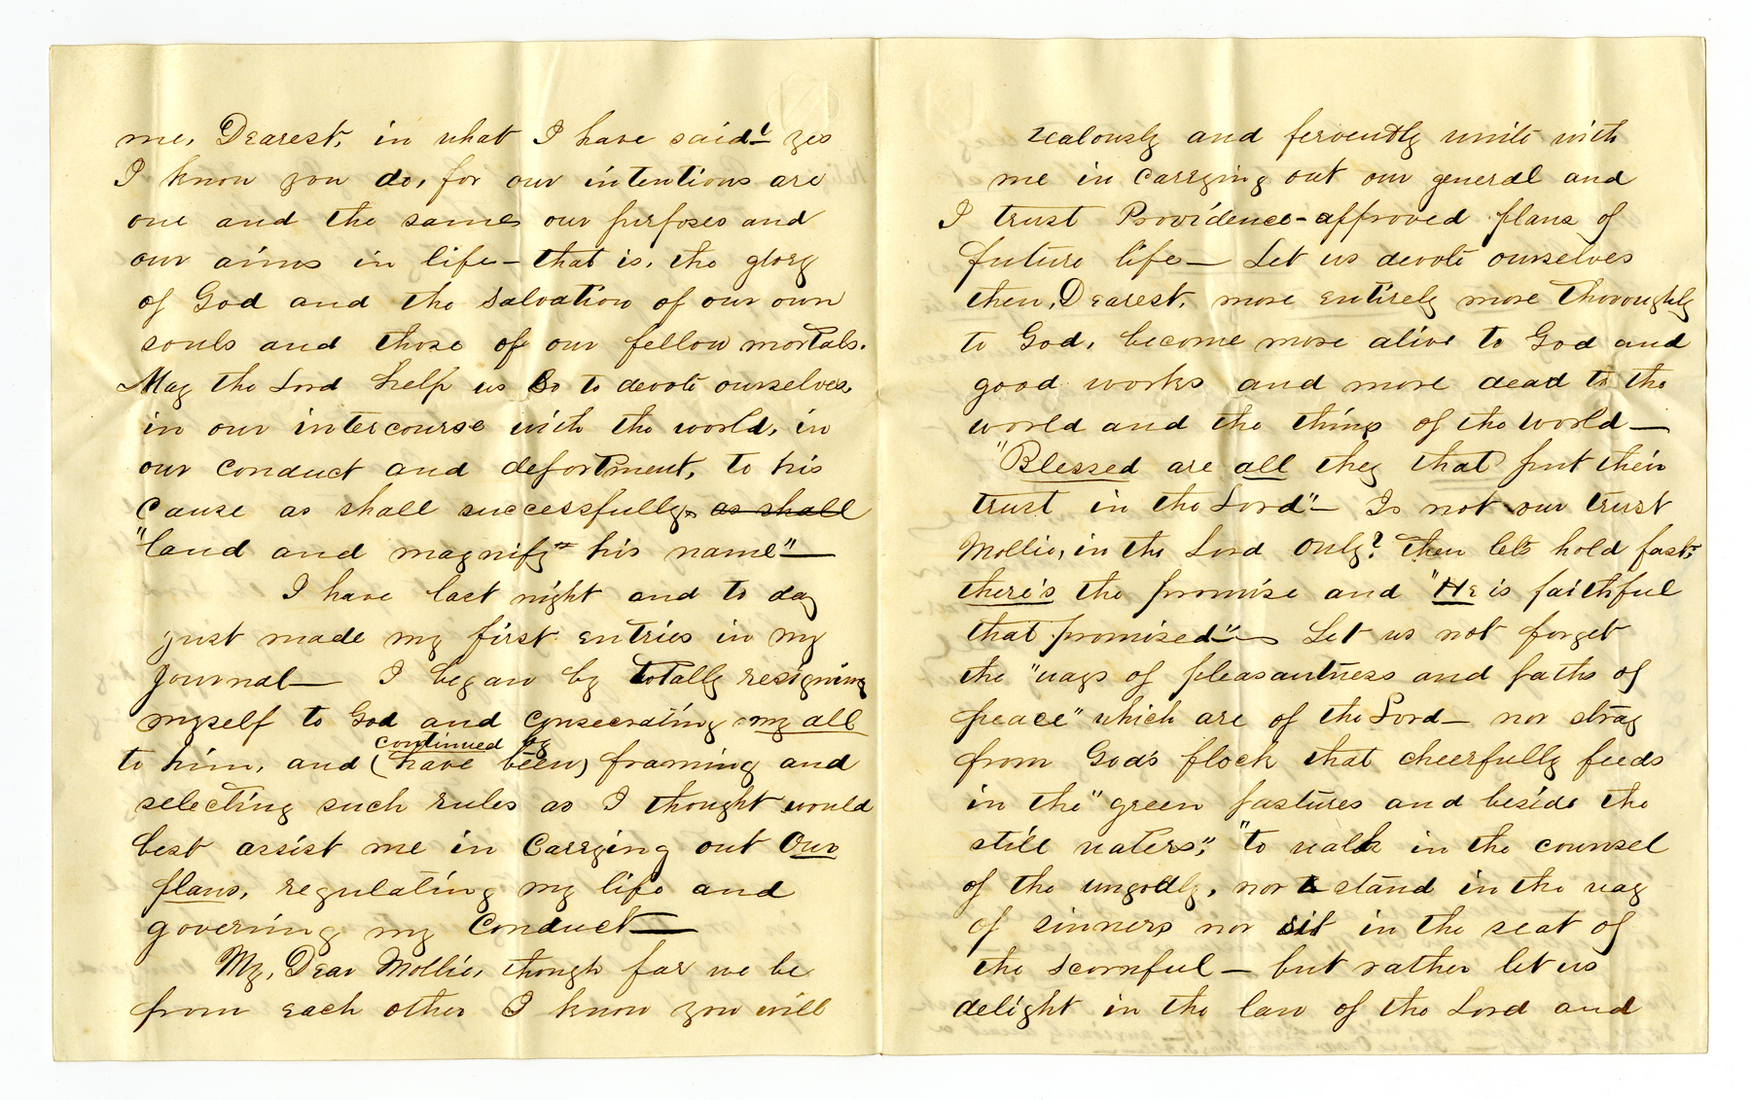 me, Dearest, in what I have said! yes
I know you do, for our intentions are
one and the same our purposes and
our aims in life - that is, the glory
of God and the salvation of our own
souls and those of our fellow mortals.
May the Lord help us so to devote ourselves,
in our intercourse with the world, in
our conduct and deportment, to his
cause as shall successfully, as shall
"laud and magnify" his name" —
I have last night and to day
just made my first entries in my
Journal — I began by totally resigning
myself to God and consecrating my all
continued by
to him, and (have been) framing and
selecting such rules as I thought would
best assist me in carrying out our
plans, regulating my life and
governing my conduct —
My, Dear Mollie, though far we be
from each other I know you will
zealously and fervently unite with
me in carrying out our general and
I trust Providence-approved plans of
future life — Let us devote ourselves
then, Dearest, more entirely more thoroughly
to God, become more alive to God and
good works and more dead to the
world and the things of the world —
"Blessed are all they that put their
trust in the Lord" — Is not our trust
Mollie, in the Lord only? then let's hold fast;
there's the promise and "He is faithful
that promised" — Let us not forget
the "ways of pleasantness and paths of
peace" which are of the Lord — nor stray
from God's flock that cheerfully feeds
in the "green pastures and beside the
still waters;" "to walk in the counsel
of the ungodly, nor to stand in the way
of sinners nor sit in the seat of
the scornful — but rather let us
delight in the law of the Lord and